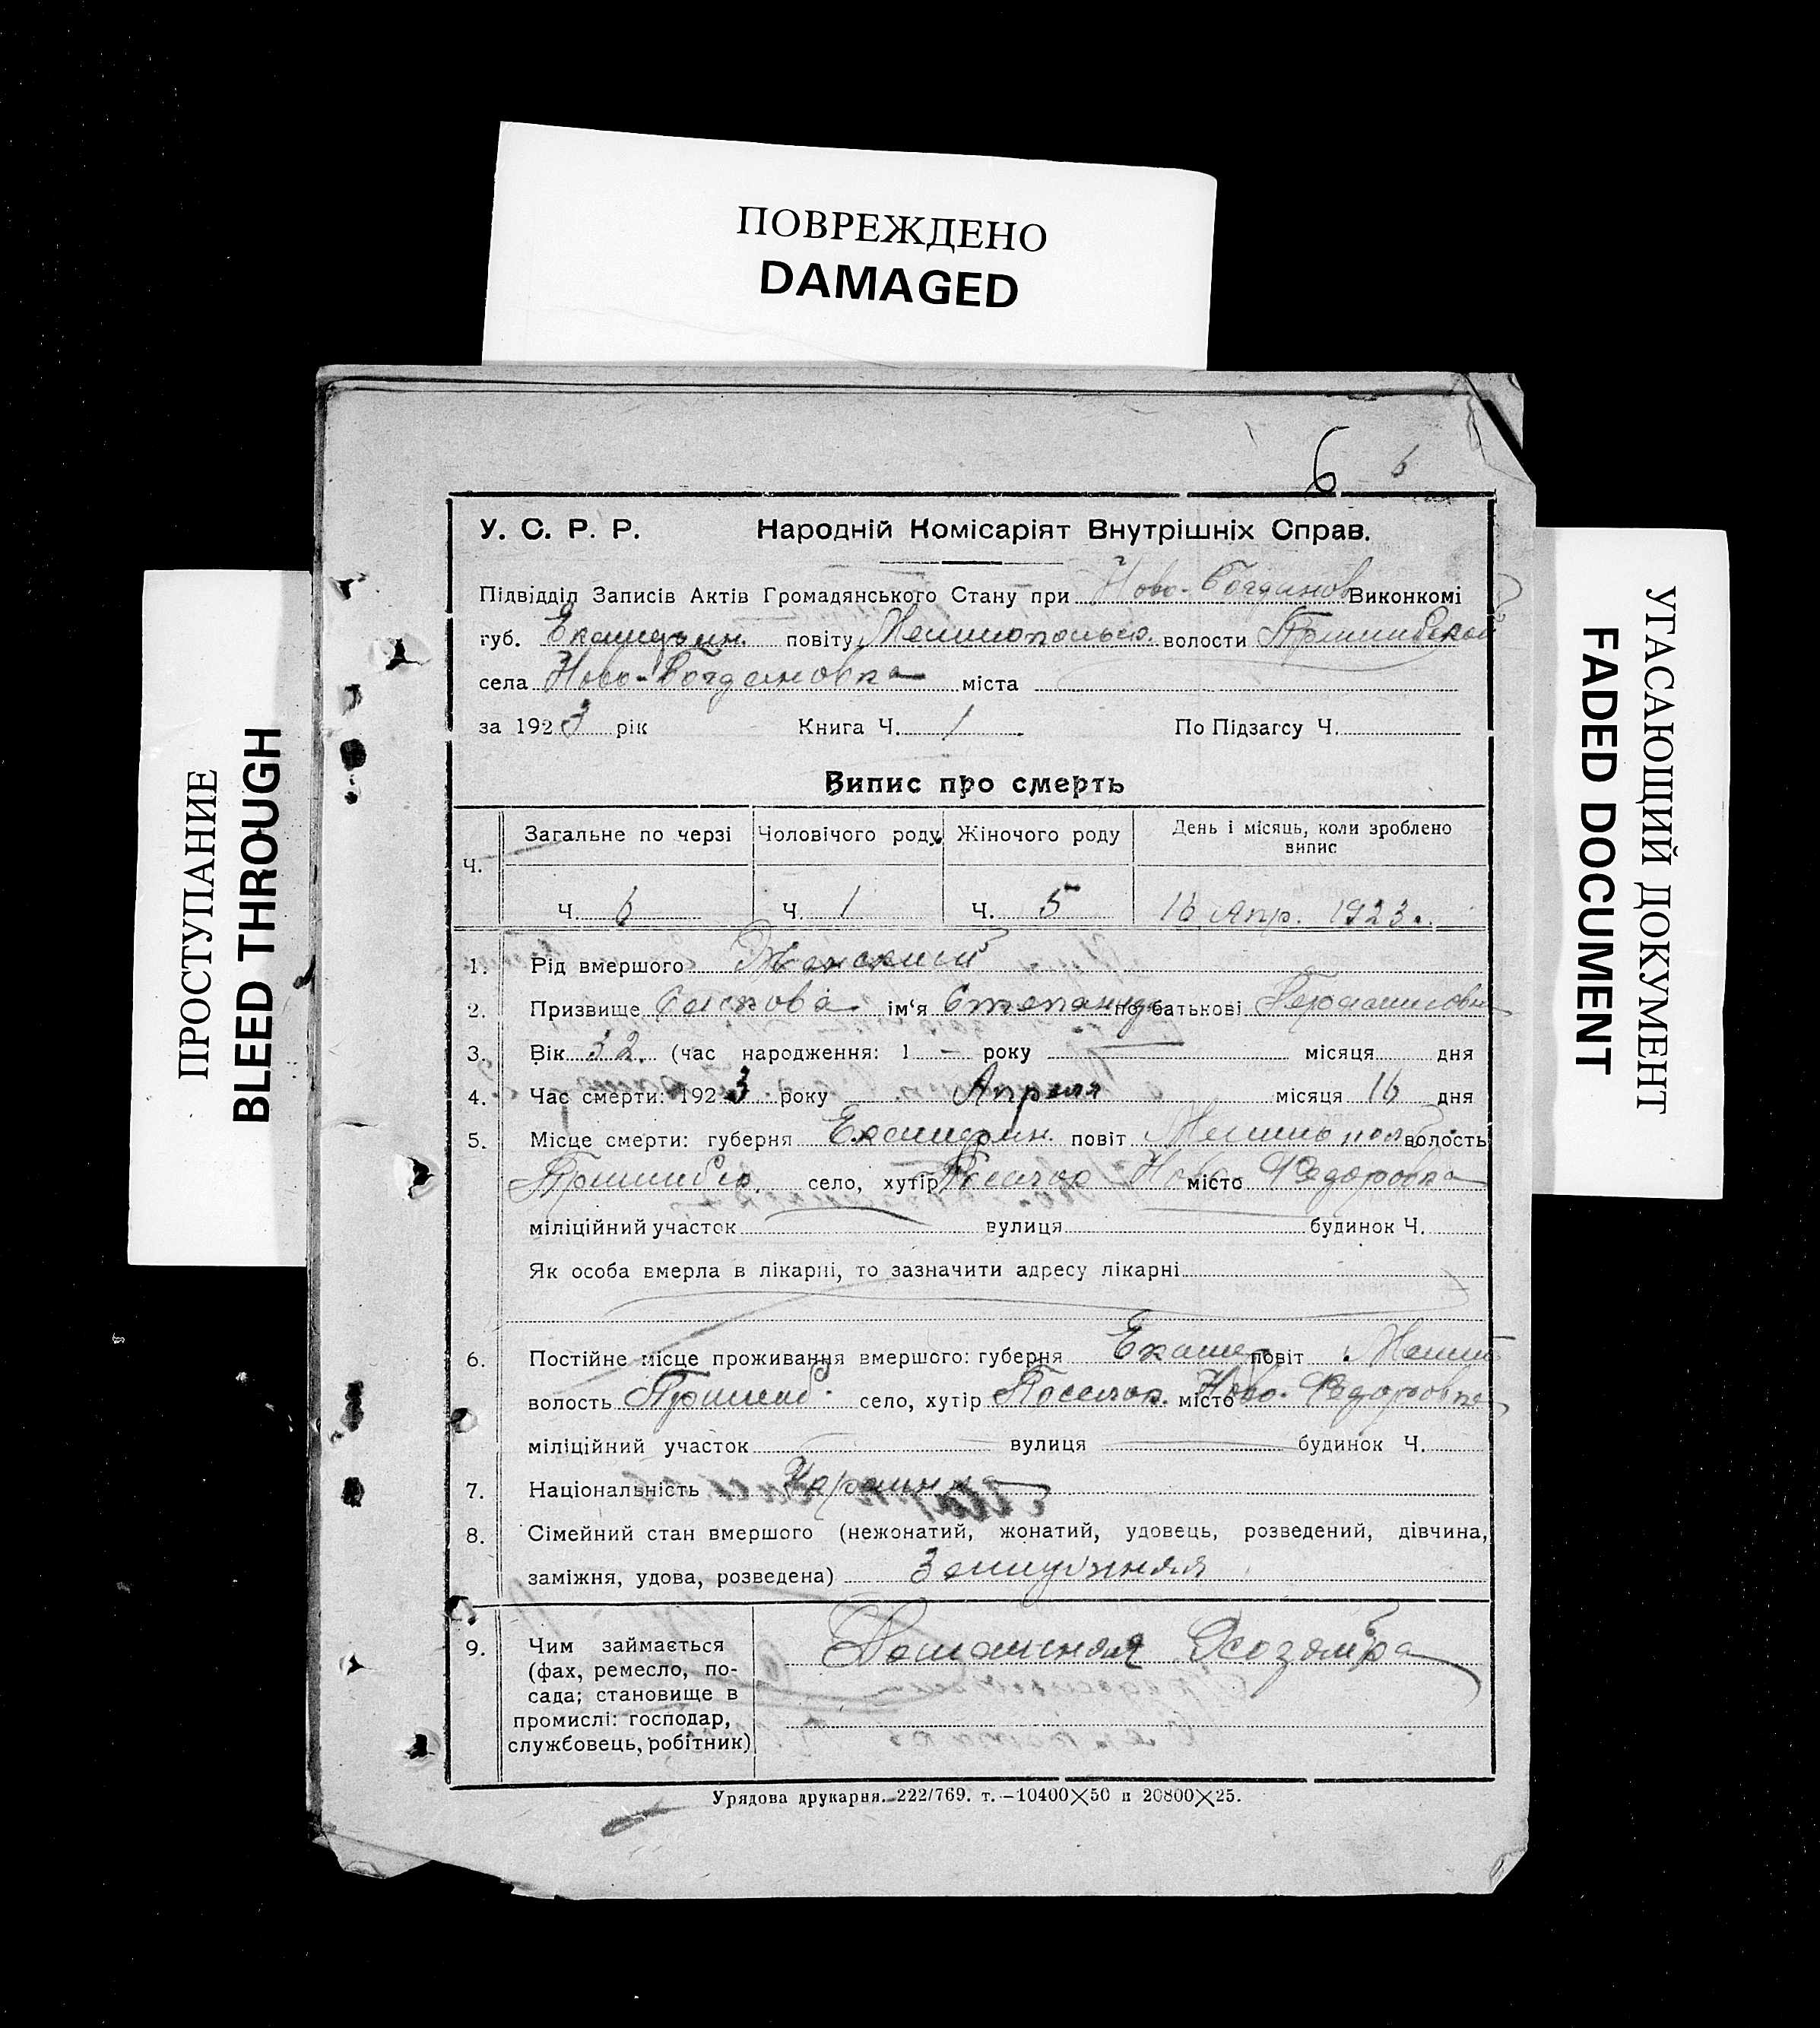 ПОВРЕЖДЕНО
DAMAGED
ПРОСТУПАНИЕ
BLEED THROUGH
УГАСАЮЩИЙ ДОКУМЕНТ
FADED DOCUMENT
6 6
У. С. Р. Р. Народній Комісаріят Внутрішніх Справ.
Підвідділ Записів Актів Громадянського Стану при Ново-Богданов Виконкомі
губ. Екатерин. повіту Мелитопольс. волости Пришибской
села Ново-Богдановка міста
за 1923 рік Книга Ч. 1 По Підзагсу Ч.
Випис про смерть
Ч. Загальне по черзі Чоловічого роду Жіночого роду День і місяць, коли зроблено випис
Ч. 6 Ч. 1 Ч. 5 16 Апр. 1923 г.
1. Рід вмершого Женский
2. Призвище ім'я Степанида по батькові
3. Вік 32 (час народження: 1 — року місяця дня
4. Час смерти: 1923 року Апреля місяця 16 дня
5. Місце смерти: губерня Екатерин. повіт Мелитопол волость
Пришибск. село, хутір Поселок Ново місто Федоровка
міліційний участок вулиця будинок Ч.
Як особа вмерла в лікарні, то зазначити адресу лікарні
6. Постійне місце проживання вмершого: губерня Екатер повіт Мелит
волость Пришиб. село, хутір Поселок. місто Ново-Федоровка
міліційний участок вулиця будинок Ч.
7. Національність Украинка
8. Сімейний стан вмершого (нежонатий, жонатий, удовець, розведений, дівчина,
заміжня, удова, розведена) Замужняя
9. Чим займається Домашняя Хозяйка
(фах, ремесло, по-
сада; становище в
промислі: господар,
службовець, робітник)
Урядова друкарня. 222/769. т.—10400×50 и 20800×25.